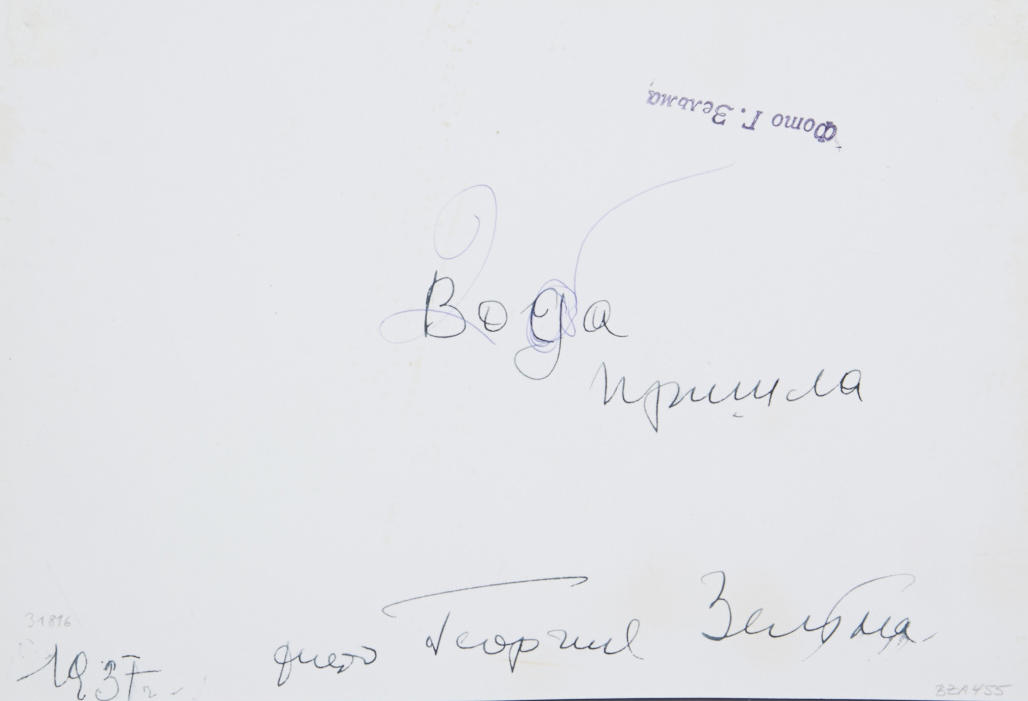 Фото Г. Зельма
Вода
пришла
31816
1937 г. фото Георгия Зельма
BZA 455